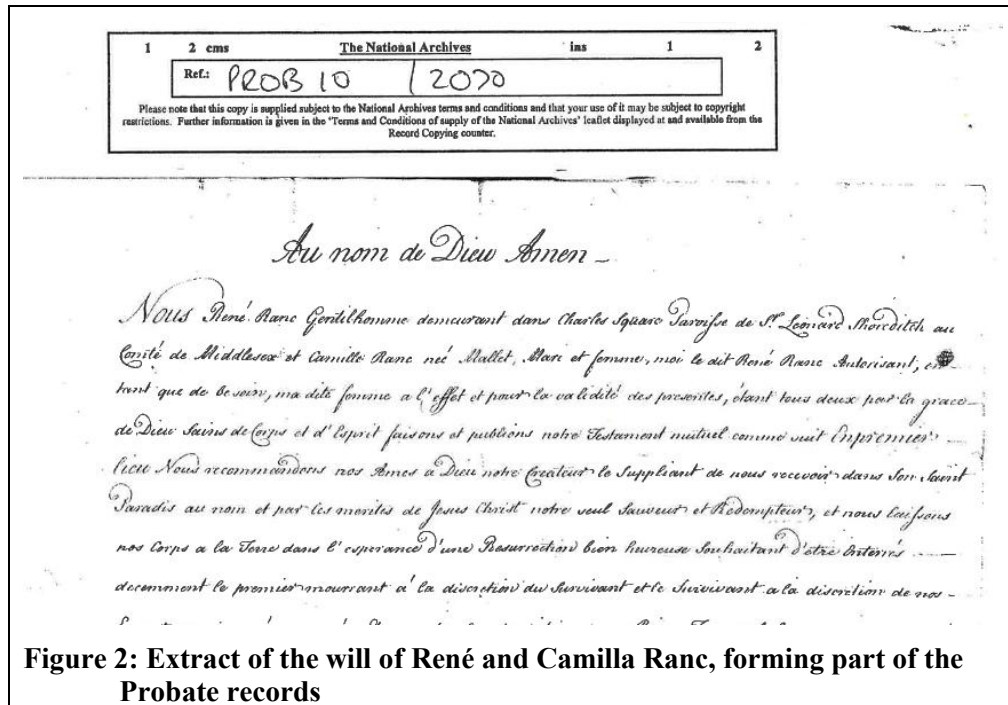 1 2 cms The National Archives ins 1 2
Ref.: PROB 10 / 2070
Please note that this copy is supplied subject to the National Archives terms and conditions and that your use of it may be subject to copyright
restrictions. Further information is given in the 'Terms and Conditions of supply of the National Archives' leaflet displayed at and available from the
Record Copying counter.
Au nom de Dieu Amen —
Nous René Ranc Gentilhomme demeurant dans Charles Square Paroisse de St. Leonard Shoreditch au
Comté de Middlesex et Camille Ranc neé Mallet, Mari et femme, moi le dit René Ranc Autorisant, en
tant que de besoin, ma dite femme a l'effet et pour la validité des presentes, étant tous deux par la grace
de Dieu Sains de Corps et d'Esprit faisons et publions notre Testament mutuel comme suit Enpremier
lieu Nous recommandons nos Ames a Dieu notre Createur le Suppliant de nous recevoir dans Son Saint
Paradis au nom et par les merites de Jesus Christ notre seul Sauveur et Redempteur, et nous laissons
nos Corps a la Terre dans l'esperance d'une Resurrection bien heureuse Souhaitant d'être Enterrés
decemment le premier mourrant á la discretion du Survivant et le Survivant a la discretion de nos
Figure 2: Extract of the will of René and Camilla Ranc, forming part of the
Probate records